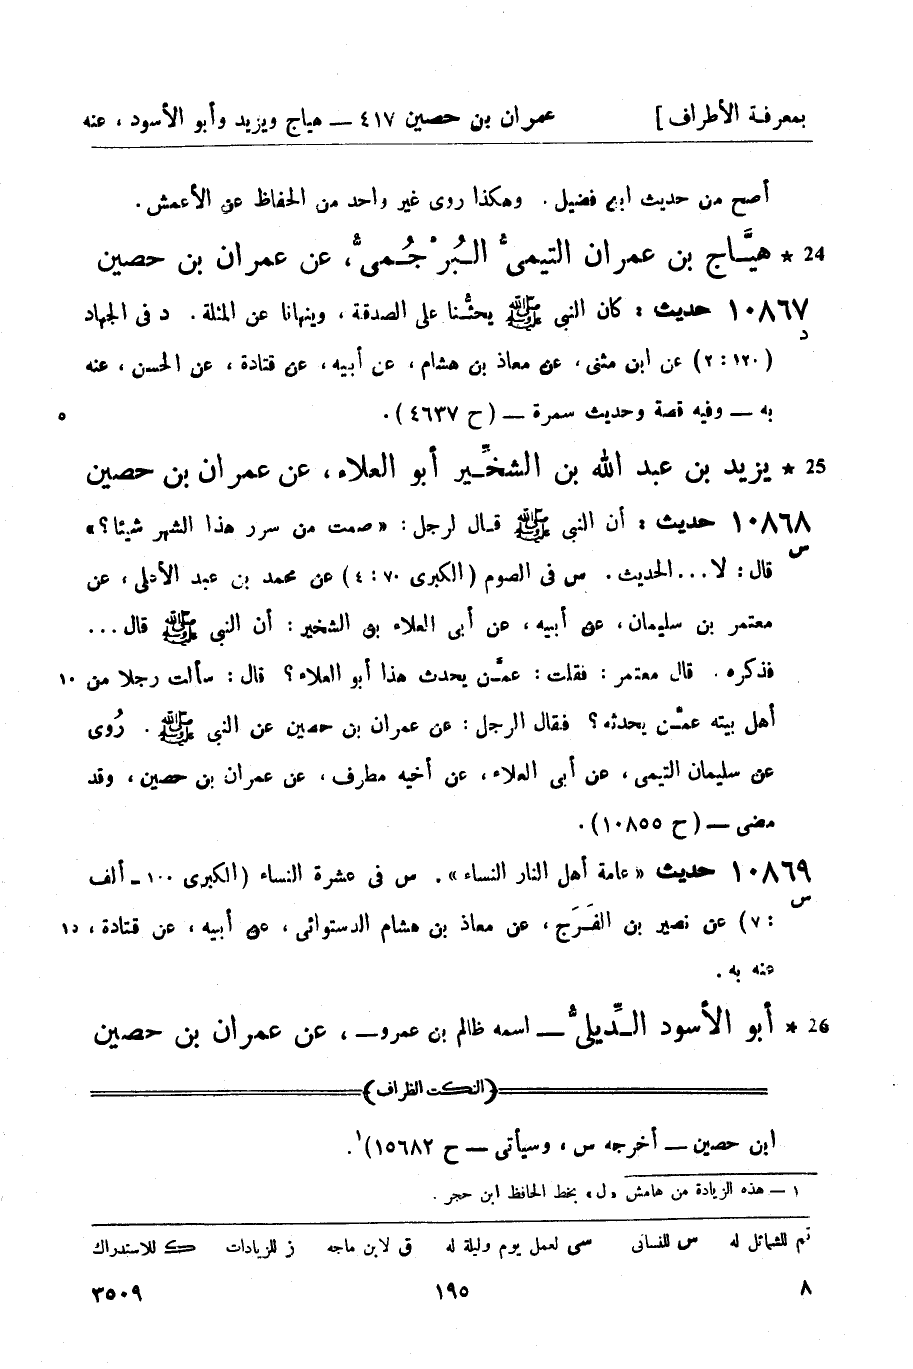 بمعرفة الأطراف ] عمران بن حصين ٤١٧ — هياج ويزيد وأبو الأسود ، عنه
أصح من حديث ابن فضيل . وهكذا روى غير واحد من الحفاظ عن الأعمش .
24 * هيَّاج بن عمران التيمىُّ البُرْجُمىُّ ، عن عمران بن حصين
١٠٨٦٧ حديث : كان النبي ﷺ يحثُّنا على الصدقة ، وينهانا عن المثلة . د فى الجهاد
د
(١٢٠ : ٢) عن ابن مثنى ، عن معاذ بن هشام ، عن أبيه ، عن قتادة ، عن الحسن ، عنه
به — وفيه قصة وحديث سمرة — (ح ٤٦٣٧) . ٥
25 * يزيد بن عبد الله بن الشخِّير أبو العلاء ، عن عمران بن حصين
١٠٨٦٨ حديث : أن النبي ﷺ قال لرجل : «صمت من سرر هذا الشهر شيئا؟»
س
قال : لا... الحديث . س فى الصوم (الكبرى ٧٠ : ٤) عن محمد بن عبد الأعلى ، عن
معتمر بن سليمان ، عن أبيه ، عن أبى العلاء بن الشخير : أن النبي ﷺ قال ...
فذكره . قال معتمر : فقلت : عمَّن يحدث هذا أبو العلاء ؟ قال : سألت رجلا من ١٠
أهل بيته عمَّن يحدثه ؟ فقال الرجل : عن عمران بن حصين عن النبي ﷺ . رُوى
عن سليمان التيمى ، عن أبى العلاء ، عن أخيه مطرف ، عن عمران بن حصين ، وقد
مضى — (ح ١٠٨٥٥) .
١٠٨٦٩ حديث «عامة أهل النار النساء» . س فى عشرة النساء (الكبرى ١٠٠ - ألف
س
: ٧) عن نصير بن الفَرَج ، عن معاذ بن هشام الدستوائى ، عن أبيه ، عن قتادة ، ١٥
عنه به .
26 * أبو الأسود الدِّيلىُّ — اسمه ظالم بن عمرو — ، عن عمران بن حصين
(النكت الظراف)
ابن حصين — أخرجه س ، وسيأتى — ح ١٥٦٨٢)١ .
١ — هذه الزيادة من هامش «ل» بخط الحافظ ابن حجر .
تم للشمائل له س للنسائى سى لعمل يوم وليلة له ق لابن ماجه ز للزيادات ك للاستدراك
٨ ١٩٥ ٣٥٠٩